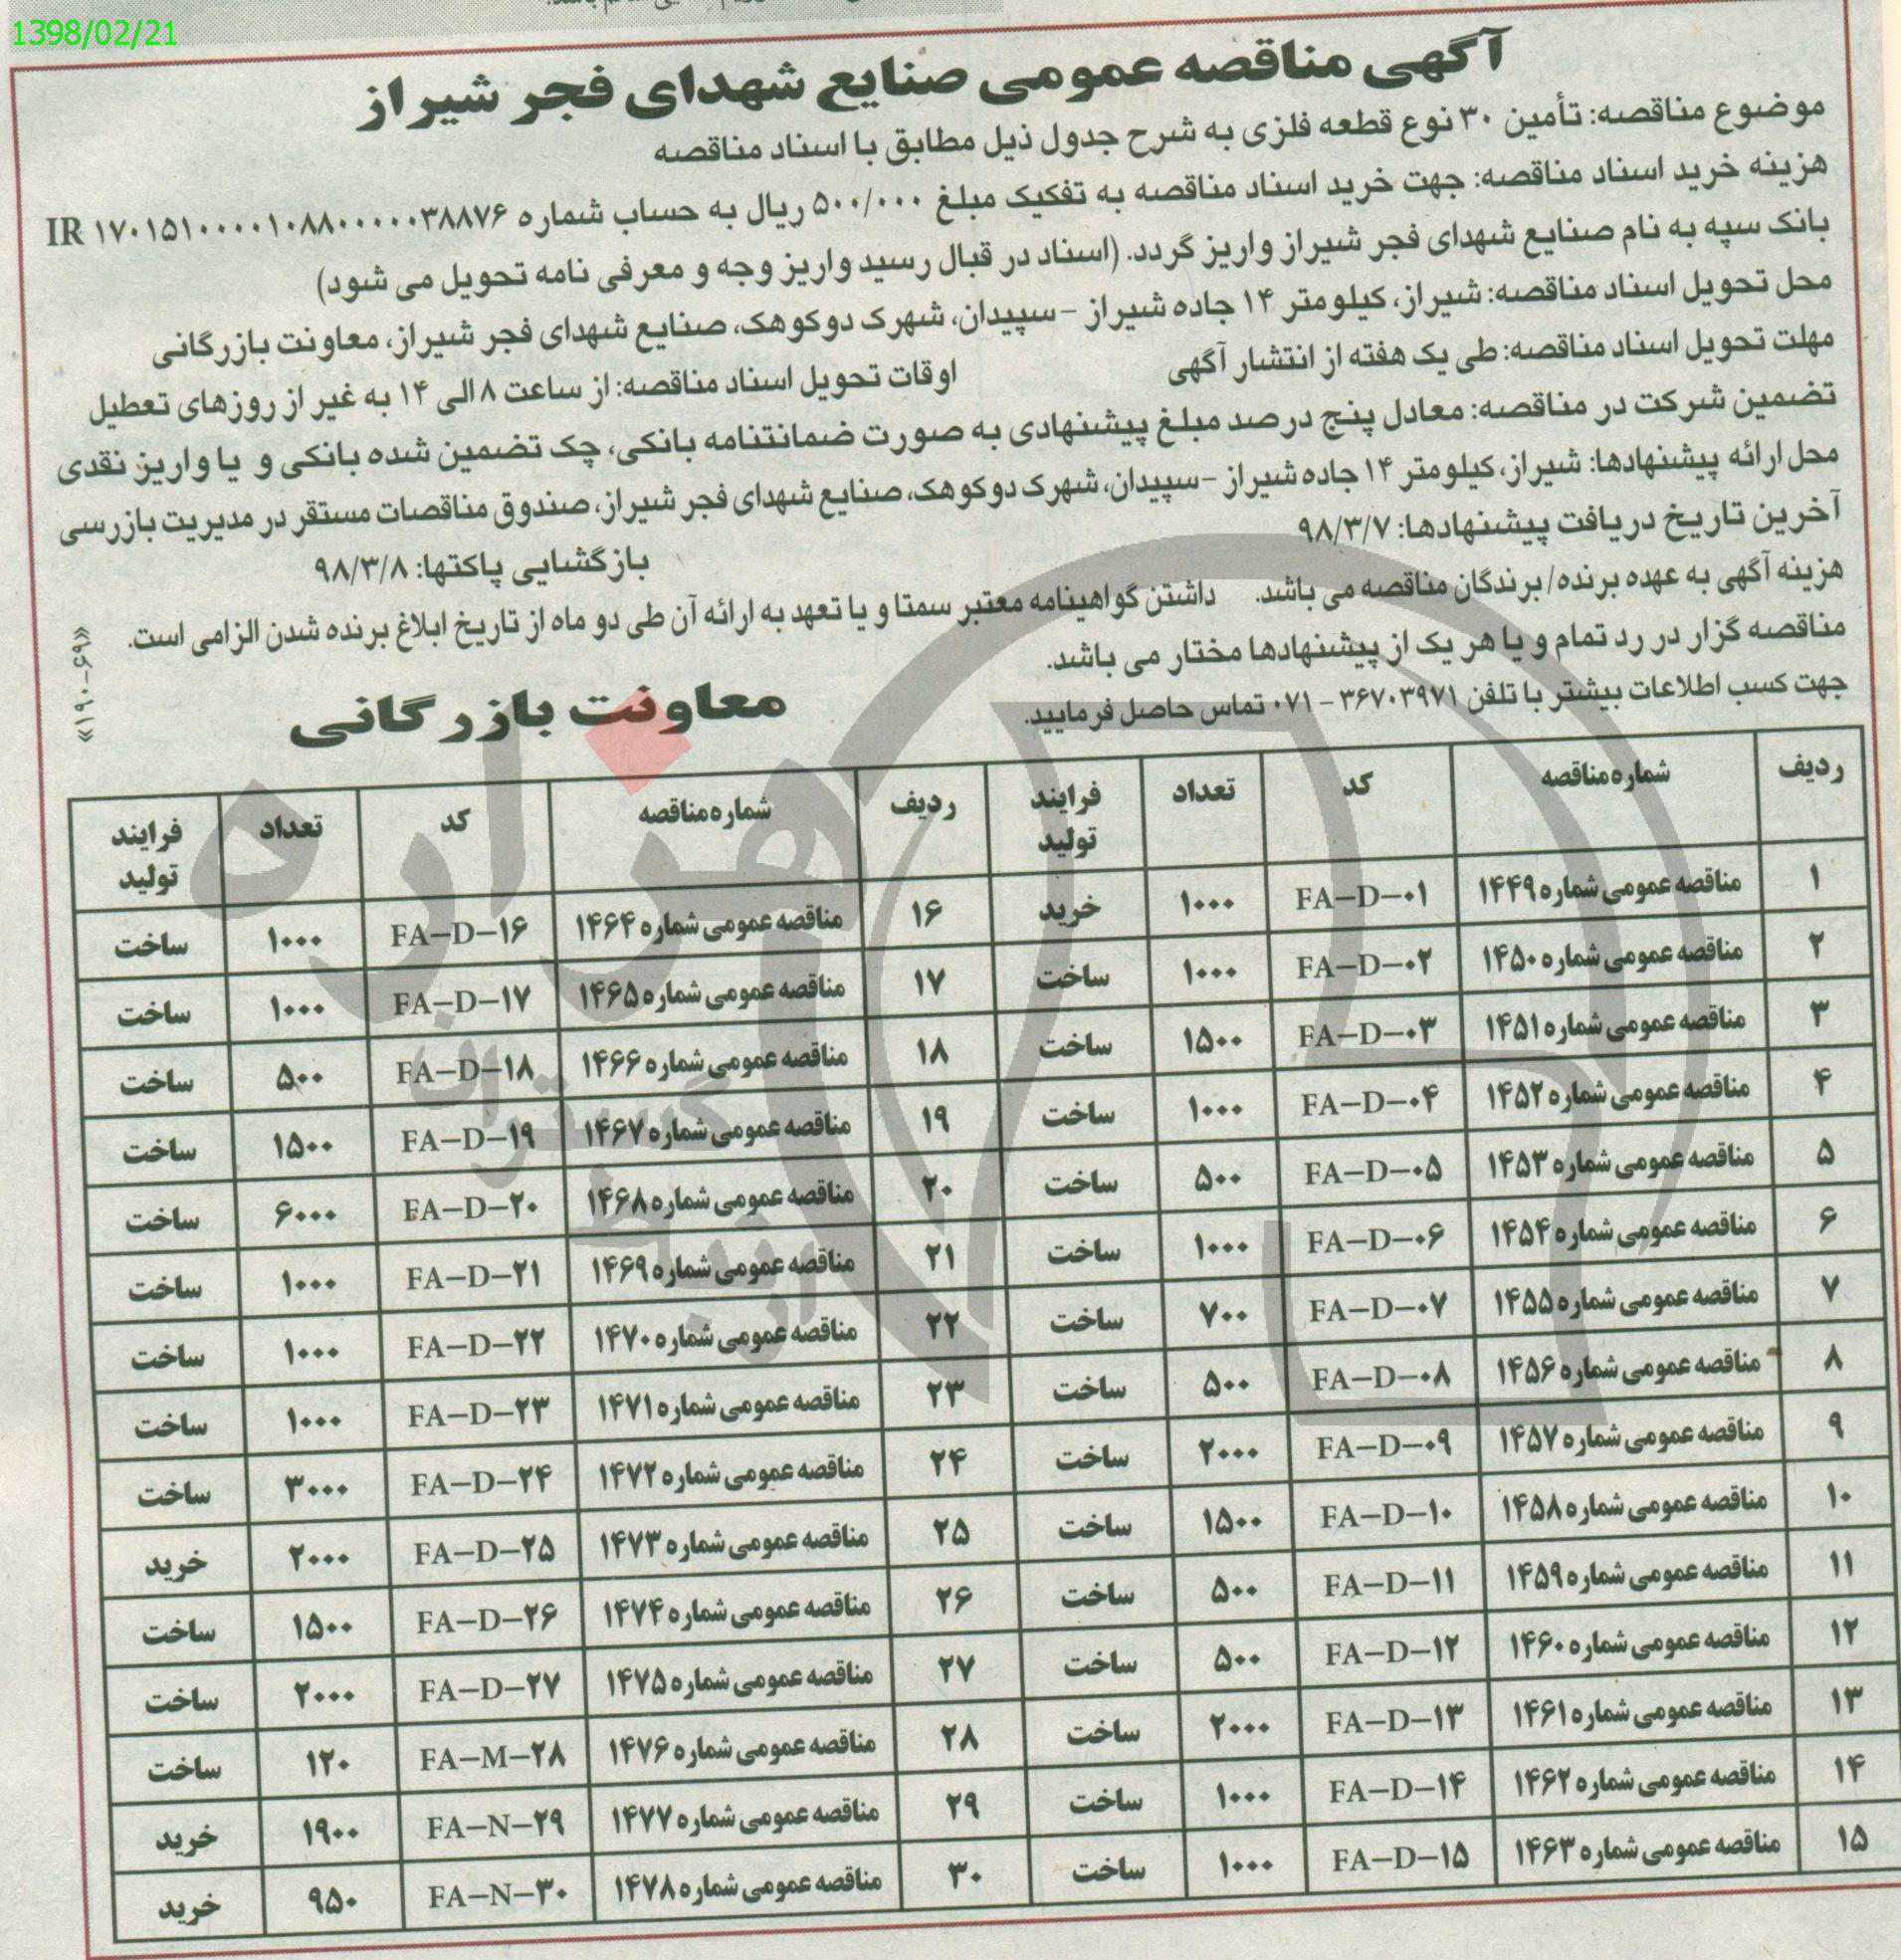 1398/02/21
آگهی مناقصه عمومی صنایع شهدای فجر شیراز
موضوع مناقصه: تأمین ۳۰ نوع قطعه فلزی به شرح جدول ذیل مطابق با اسناد مناقصه
هزینه خرید اسناد مناقصه: جهت خرید اسناد مناقصه به تفکیک مبلغ ۵۰۰/۰۰۰ ریال به حساب شماره IR ۱۷۰۱۵۱۰۰۰۰۰۱۰۸۸۰۰۰۰۰۳۸۸۷۶
بانک سپه به نام صنایع شهدای فجر شیراز واریز گردد. (اسناد در قبال رسید واریز وجه و معرفی نامه تحویل می شود)
محل تحویل اسناد مناقصه: شیراز، کیلومتر ۱۴ جاده شیراز -سپیدان، شهرک دوکوهک، صنایع شهدای فجر شیراز، معاونت بازرگانی
مهلت تحویل اسناد مناقصه: طی یک هفته از انتشار آگهی اوقات تحویل اسناد مناقصه: از ساعت ۸ الی ۱۴ به غیر از روزهای تعطیل
تضمین شرکت در مناقصه: معادل پنج درصد مبلغ پیشنهادی به صورت ضمانتنامه بانکی، چک تضمین شده بانکی و یا واریز نقدی
محل ارائه پیشنهادها: شیراز، کیلومتر ۱۴ جاده شیراز -سپیدان، شهرک دوکوهک، صنایع شهدای فجر شیراز، صندوق مناقصات مستقر در مدیریت بازرسی
آخرین تاریخ دریافت پیشنهادها: ۹۸/۳/۷ بازگشایی پاکتها: ۹۸/۳/۸
هزینه آگهی به عهده برنده/ برندگان مناقصه می باشد. داشتن گواهینامه معتبر سمتا و یا تعهد به ارائه آن طی دو ماه از تاریخ ابلاغ برنده شدن الزامی است.
مناقصه گزار در رد تمام و یا هر یک از پیشنهادها مختار می باشد.
جهت کسب اطلاعات بیشتر با تلفن ۳۶۷۰۳۹۷۱ - ۰۷۱ تماس حاصل فرمایید.
معاونت بازرگانی
«۱۹۰-۶۹»
ردیف شماره مناقصه کد تعداد فرایند تولید ردیف شماره مناقصه کد تعداد فرایند تولید
۱ مناقصه عمومی شماره ۱۴۴۹ FA-D-۰۱ ۱۰۰۰ خرید ۱۶ مناقصه عمومی شماره ۱۴۶۴ FA-D-۱۶ ۱۰۰۰ ساخت
۲ مناقصه عمومی شماره ۱۴۵۰ FA-D-۰۲ ۱۰۰۰ ساخت ۱۷ مناقصه عمومی شماره ۱۴۶۵ FA-D-۱۷ ۱۰۰۰ ساخت
۳ مناقصه عمومی شماره ۱۴۵۱ FA-D-۰۳ ۱۵۰۰ ساخت ۱۸ مناقصه عمومی شماره ۱۴۶۶ FA-D-۱۸ ۵۰۰ ساخت
۴ مناقصه عمومی شماره ۱۴۵۲ FA-D-۰۴ ۱۰۰۰ ساخت ۱۹ مناقصه عمومی شماره ۱۴۶۷ FA-D-۱۹ ۱۵۰۰ ساخت
۵ مناقصه عمومی شماره ۱۴۵۳ FA-D-۰۵ ۵۰۰ ساخت ۲۰ مناقصه عمومی شماره ۱۴۶۸ FA-D-۲۰ ۶۰۰۰ ساخت
۶ مناقصه عمومی شماره ۱۴۵۴ FA-D-۰۶ ۱۰۰۰ ساخت ۲۱ مناقصه عمومی شماره ۱۴۶۹ FA-D-۲۱ ۱۰۰۰ ساخت
۷ مناقصه عمومی شماره ۱۴۵۵ FA-D-۰۷ ۷۰۰ ساخت ۲۲ مناقصه عمومی شماره ۱۴۷۰ FA-D-۲۲ ۱۰۰۰ ساخت
۸ مناقصه عمومی شماره ۱۴۵۶ FA-D-۰۸ ۵۰۰ ساخت ۲۳ مناقصه عمومی شماره ۱۴۷۱ FA-D-۲۳ ۱۰۰۰ ساخت
۹ مناقصه عمومی شماره ۱۴۵۷ FA-D-۰۹ ۲۰۰۰ ساخت ۲۴ مناقصه عمومی شماره ۱۴۷۲ FA-D-۲۴ ۳۰۰۰ ساخت
۱۰ مناقصه عمومی شماره ۱۴۵۸ FA-D-۱۰ ۱۵۰۰ ساخت ۲۵ مناقصه عمومی شماره ۱۴۷۳ FA-D-۲۵ ۲۰۰۰ خرید
۱۱ مناقصه عمومی شماره ۱۴۵۹ FA-D-۱۱ ۵۰۰ ساخت ۲۶ مناقصه عمومی شماره ۱۴۷۴ FA-D-۲۶ ۱۵۰۰ ساخت
۱۲ مناقصه عمومی شماره ۱۴۶۰ FA-D-۱۲ ۵۰۰ ساخت ۲۷ مناقصه عمومی شماره ۱۴۷۵ FA-D-۲۷ ۲۰۰۰ ساخت
۱۳ مناقصه عمومی شماره ۱۴۶۱ FA-D-۱۳ ۲۰۰۰ ساخت ۲۸ مناقصه عمومی شماره ۱۴۷۶ FA-M-۲۸ ۱۲۰ ساخت
۱۴ مناقصه عمومی شماره ۱۴۶۲ FA-D-۱۴ ۱۰۰۰ ساخت ۲۹ مناقصه عمومی شماره ۱۴۷۷ FA-N-۲۹ ۱۹۰۰ خرید
۱۵ مناقصه عمومی شماره ۱۴۶۳ FA-D-۱۵ ۱۰۰۰ ساخت ۳۰ مناقصه عمومی شماره ۱۴۷۸ FA-N-۳۰ ۹۵۰ خرید